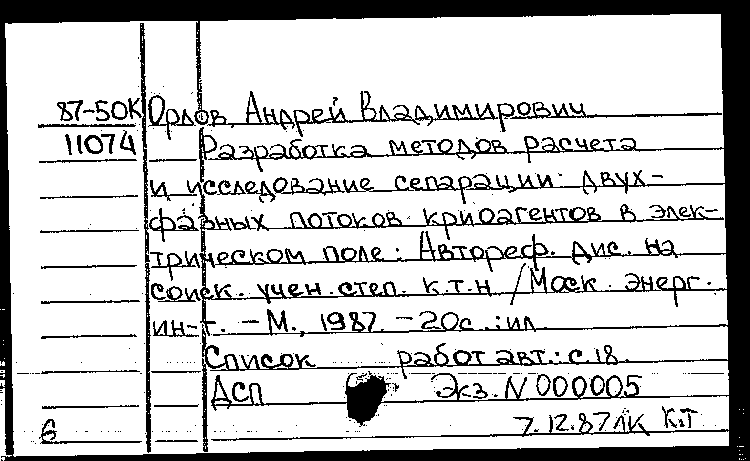 87-50К Орлов, Андрей Владимирович
11074 Разработка методов расчета
и исследование сепарации двух-
фазных потоков криоагентов в элек-
трическом поле: Автореф. дис. на
соиск. учен. степ. к.т.н / Моск. энерг.
ин-т. - М., 1987. - 20с. : ил
Список работ авт.: с.18.
ДСП Экз. N 000005
6 7.12.87 ЛК К.Т